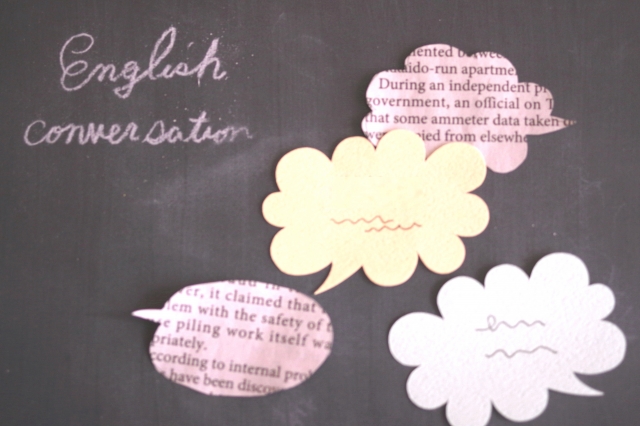 English
conversation
-run apartme
During an independent
government, an official on
that some ammeter data taken
from elsewhe
er, it claimed that
em with the safety of
piling work itself wa
riately.
ccording to internal
have been disco